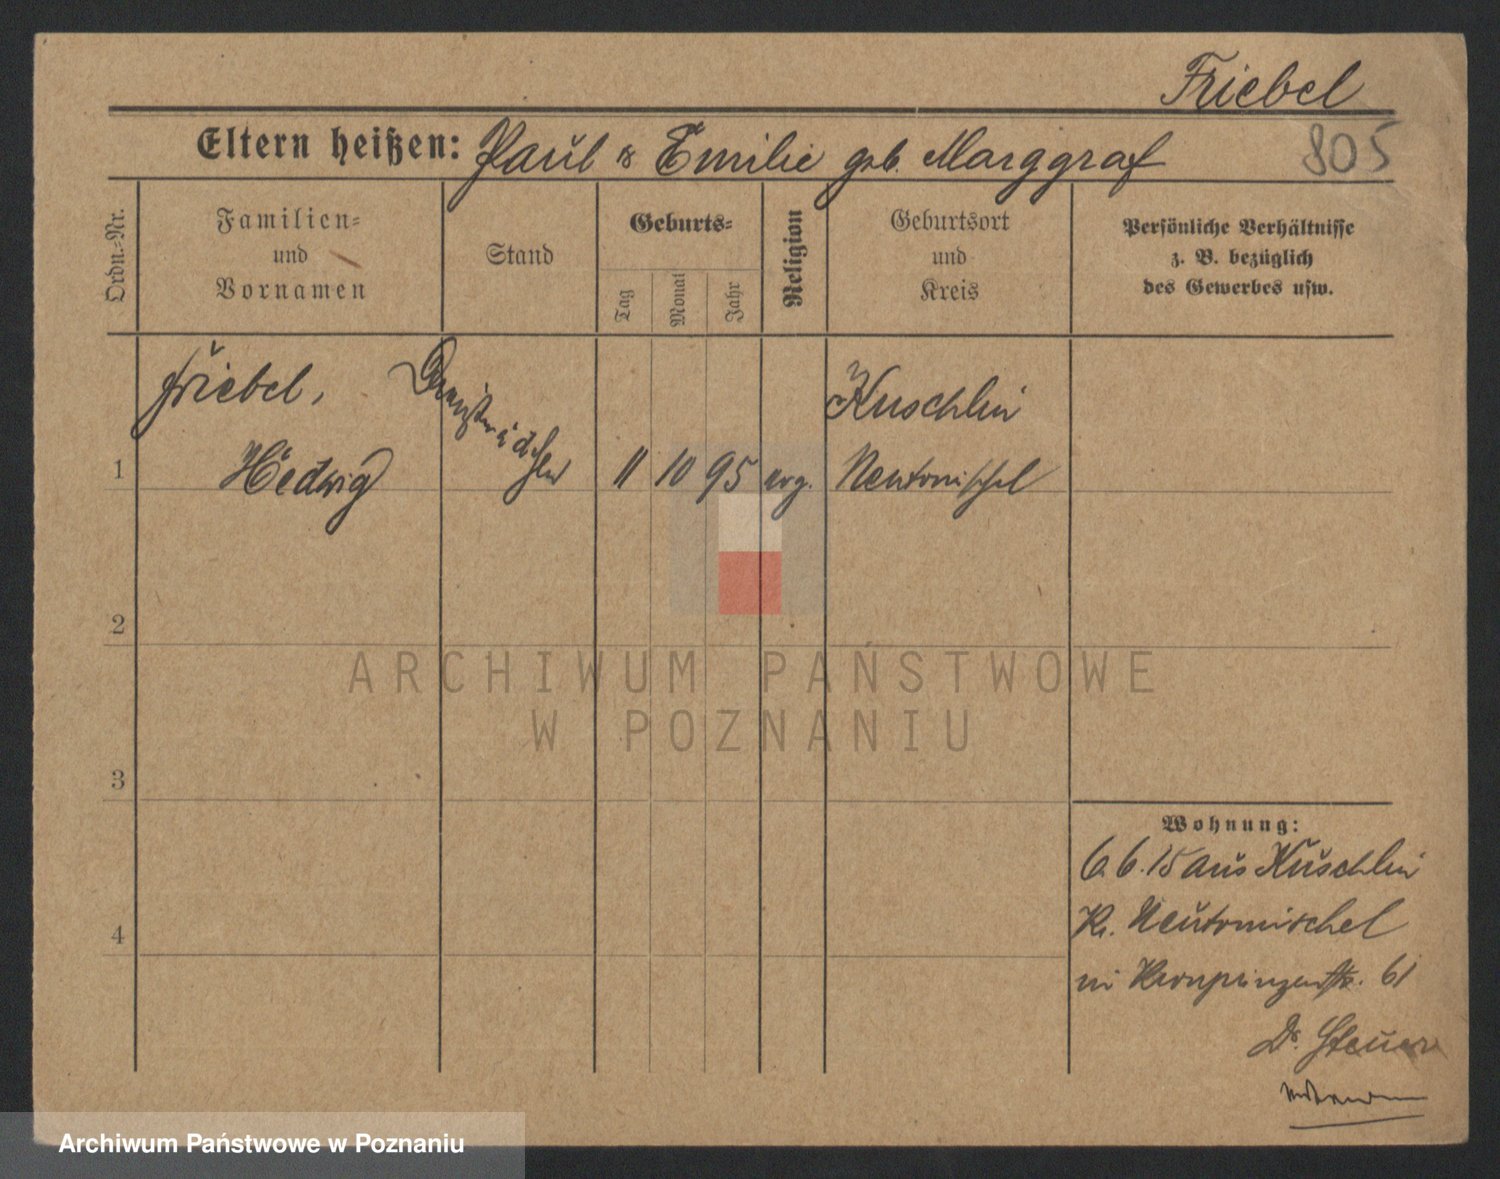 Friebel
805
Eltern heißen: Paul & Emilie geb. Marggraf
Ordn.=Nr.
Familien=
und
Vornamen
Stand
Geburts=
Tag
Monat
Jahr
Religion
Geburtsort
und
Kreis
Persönliche Verhältnisse
z. B. bezüglich
des Gewerbes usw.
1
Friebel,
Hedwig
11
10
95
evg.
Kuschlin
Neutomischel
2
3
4
Wohnung:
6.6.15 aus Kuschlin
Kr. Neutomischel
in Kronprinzenstr. 61
Dr. Steuer
ARCHIWUM PAŃSTWOWE
W POZNANIU
Archiwum Państwowe w Poznaniu